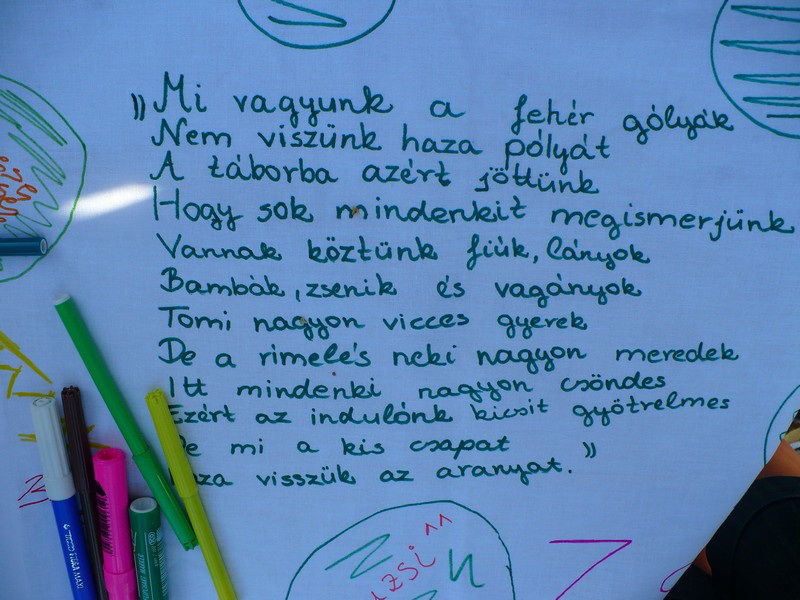 „Mi vagyunk a fehér gólyák
Nem viszünk haza pólyát
A táborba azért jöttünk
Hogy sok mindenkit megismerjünk
Vannak köztünk fiúk, lányok
Bambák, zsenik és vagányok
Tomi nagyon vicces gyerek
De a rímelés neki nagyon meredek
Itt mindenki nagyon csöndes
Ezért az indulónk kicsit gyötrelmes
De mi a kis csapat
Haza visszük az aranyat."